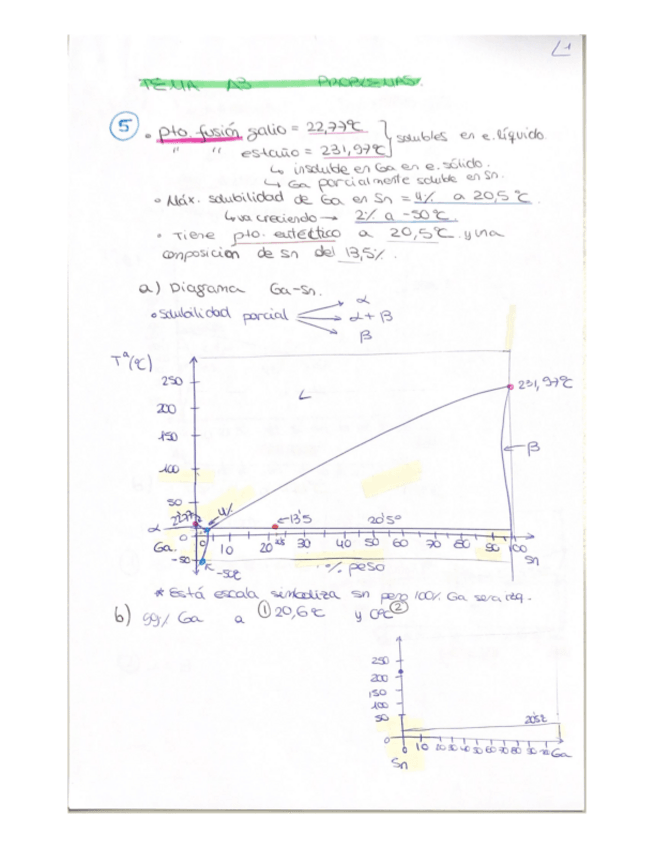 TEMA A3 PROBLEMAS.
5
• pto. fusión galio = 22,77℃
" " estaño = 231,97℃
solubles en e. líquido
↳ insoluble en Ga en e. sólido.
↳ Ga parcialmente soluble en Sn.
• Máx. solubilidad de Ga en Sn = 4% a 20,5℃.
↳ va creciendo → 2% a -50℃
• Tiene pto. eutéctico a 20,5℃ y una
composición de Sn del 13,5%.
a) Diagrama Ga-Sn.
• solubilidad parcial
α
α + β
β
Tª(℃)
250
200
150
100
50
0
-50
L
231,97℃
β
α
4%
13'5
20'5°
0 10 20 30 40 50 60 70 80 90 100
Ga.
Sn
-50℃
% peso
* Está escala simboliza Sn pero 100% Ga sera izq.
b) 99% Ga a ① 20,6℃ y 0℃ ②
250
200
150
100
50
0
0 10 20 30 40 50 60 70 80 90
Ga
Sn